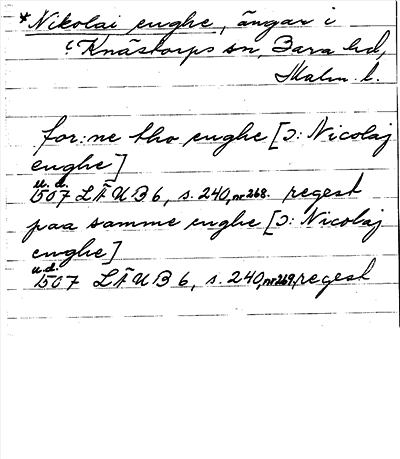 *Nikolai enghe, ängar i
Knästorps sn, Bara hd,
Malm. l.
for:ne tho enghe [ɔ: Nicolaj
enghe]
u. d.
1507 LÄUB 6, s. 240, nr 268. regest
paa samme enghe [ɔ: Nicolaj
enghe]
u.d.
1507 LÄUB 6, s. 240, nr 269, regest